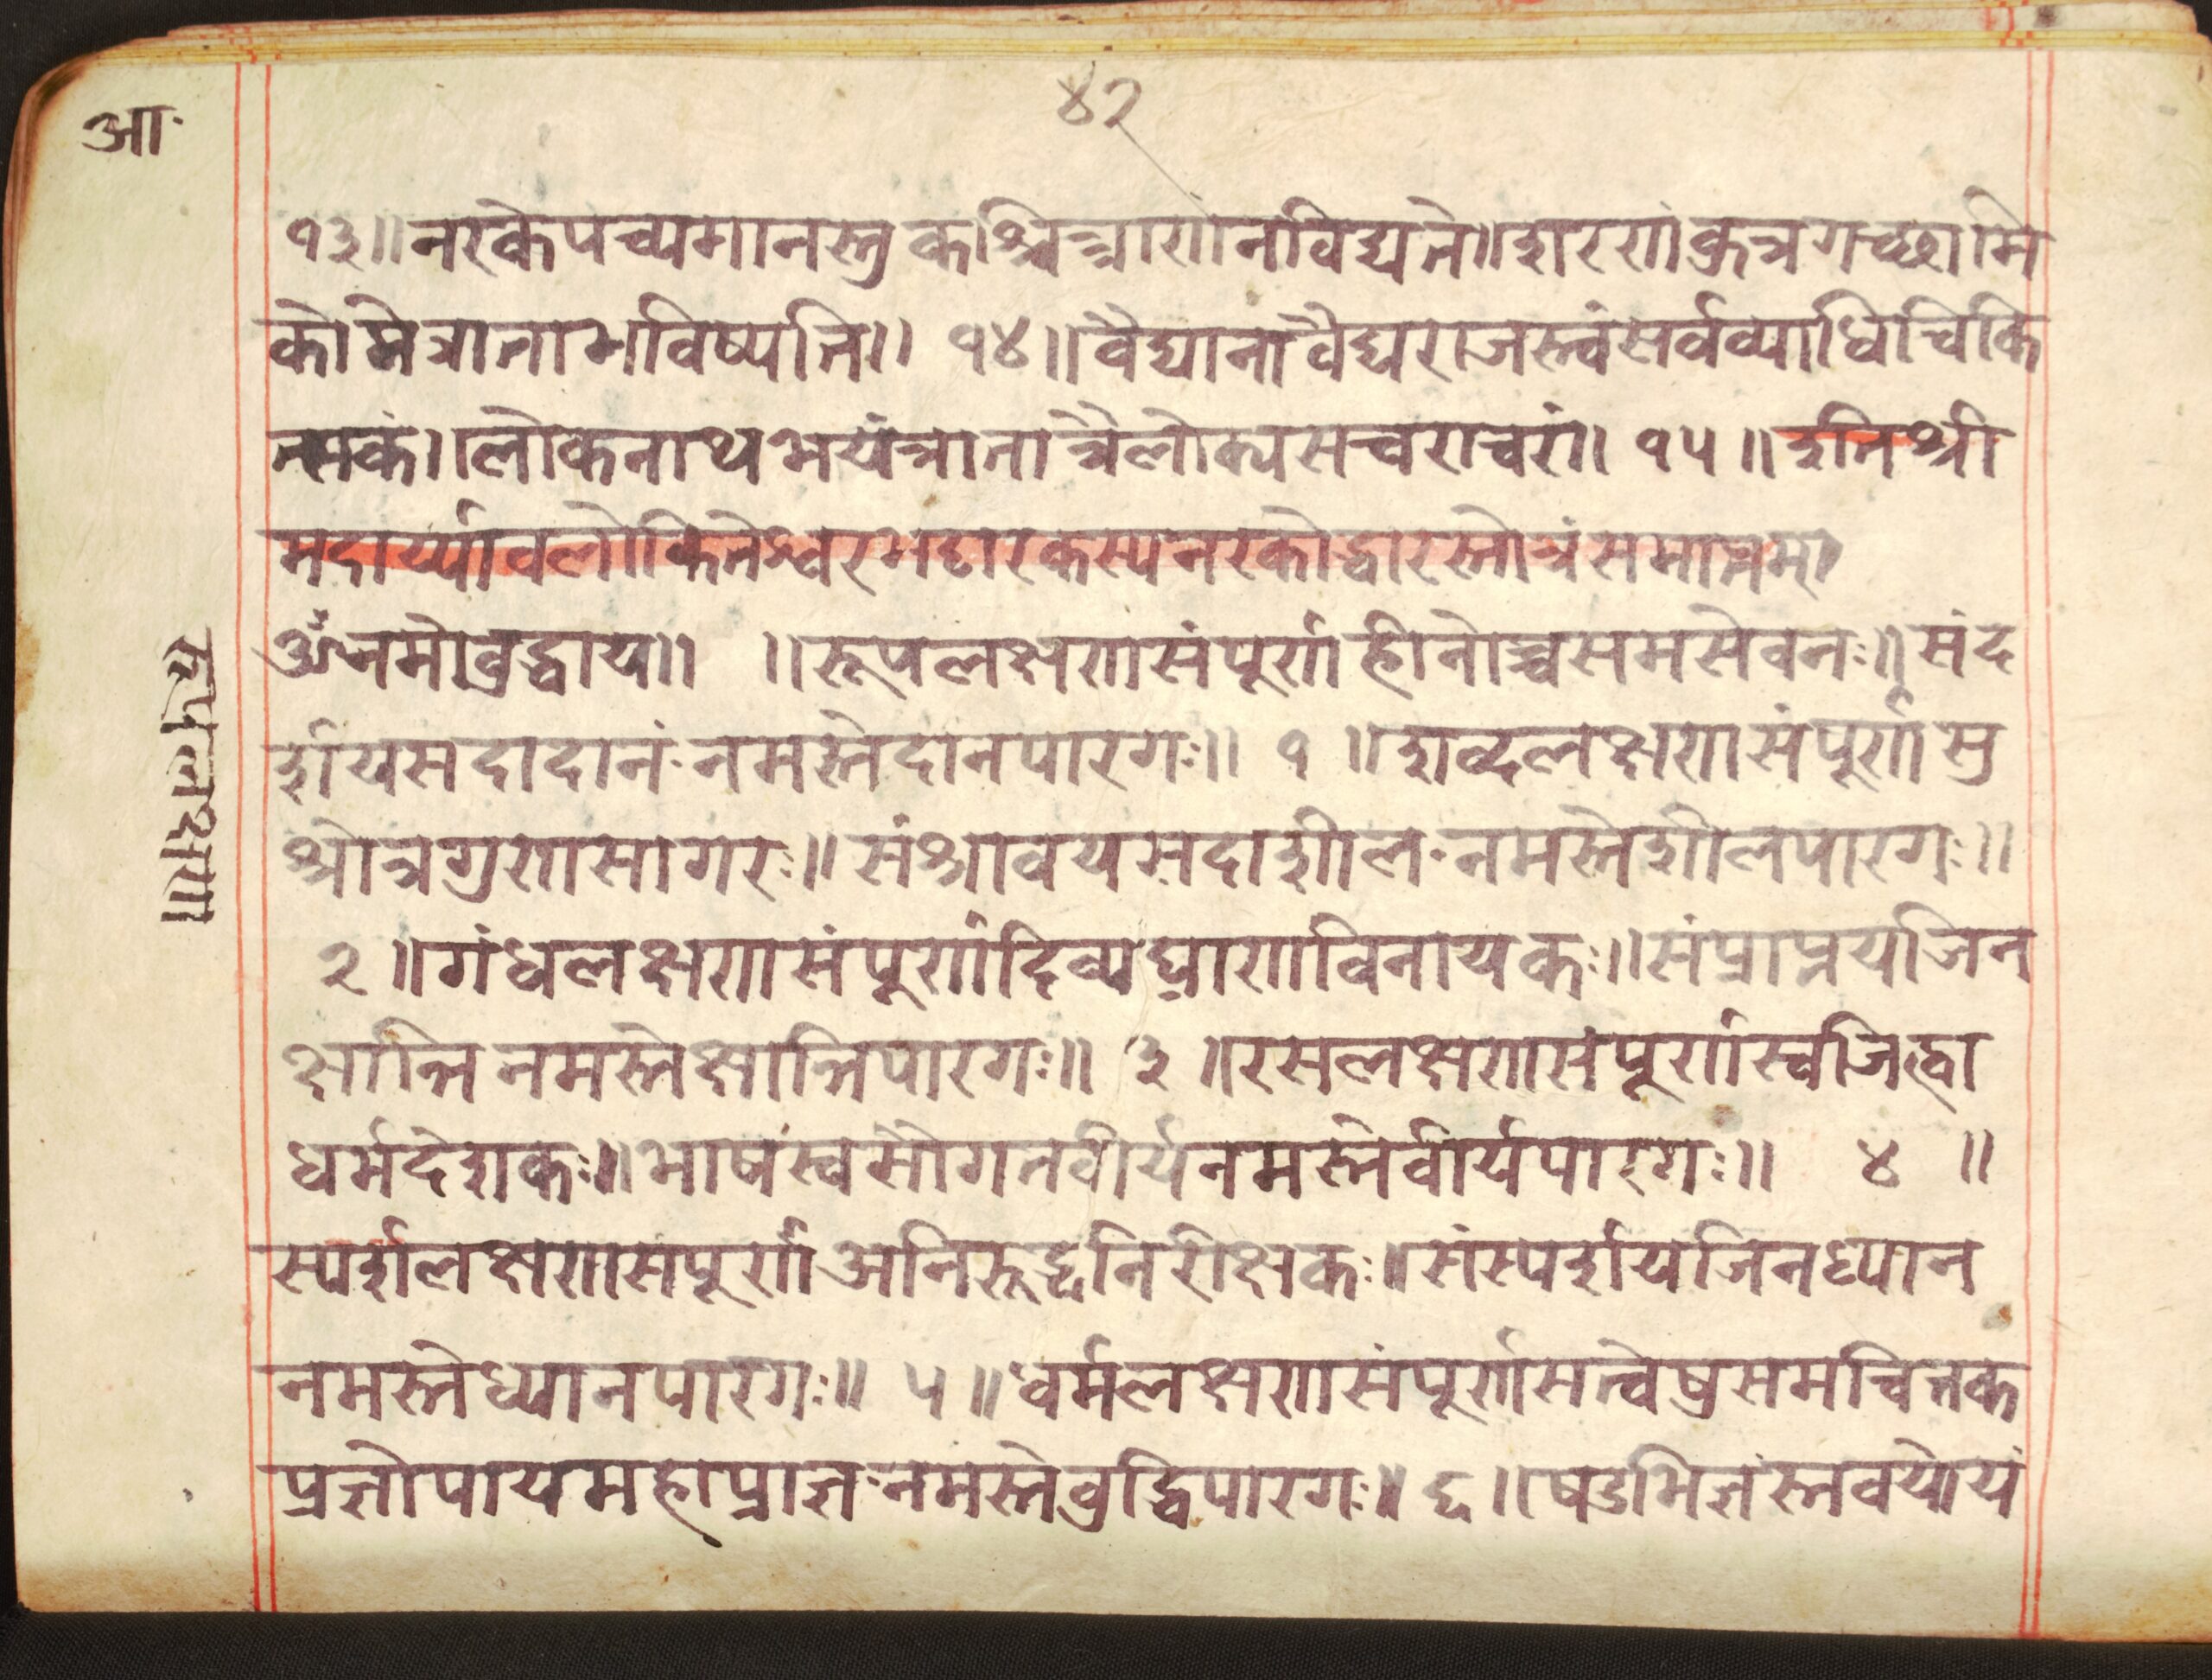 ४२
आ
१३॥नरकेपच्यमानस्तुकश्चित्त्राणोनविद्यते॥शरणंकुत्रगच्छामि
कोमेत्राताभविष्यति॥ १४॥वैद्यानांवैद्यराजस्त्वंसर्वव्याधिचिकि
त्सकं॥लोकनाथभयंत्रातात्रैलोक्यसचराचरं॥ १५॥इतिश्री
मदार्य्यावलोकितेश्वरभट्टारकस्यनरकोद्धारस्तोत्रंसमाप्तम्॥
ॐनमोबुद्धाय॥ ॥रूपलक्षणसंपूर्णहीनोच्चसमसेवनः॥संद
र्शयसदादानंनमस्तेदानपारगः॥ १ ॥शब्दलक्षणसंपूर्णसु
श्रोत्रगुणसागरः॥संश्रावयसदाशीलंनमस्तेशीलपारगः॥
२ ॥गंधलक्षणसंपूर्णदिव्यघ्राणविनायकः॥संप्राप्तयजिन
क्षान्तिनमस्तेक्षान्तिपारगः॥ ३ ॥रसलक्षणसंपूर्णस्वजिह्वा
धर्मदेशकः॥भाषंस्वसौगतवीर्यनमस्तेवीर्यपारगः॥ ४ ॥
स्पर्शलक्षणसंपूर्णअनिरूद्धनिरीक्षकः॥संस्पर्शयजिनध्यान
नमस्तेध्यानपारगः॥ ५ ॥धर्मलक्षणसंपूर्णसत्वेषुसमचित्तक
प्रज्ञोपायमहाप्राज्ञनमस्तेबुद्धिपारगः॥ ६॥षडभिज्ञंस्तवयोयं
रूपलक्षण